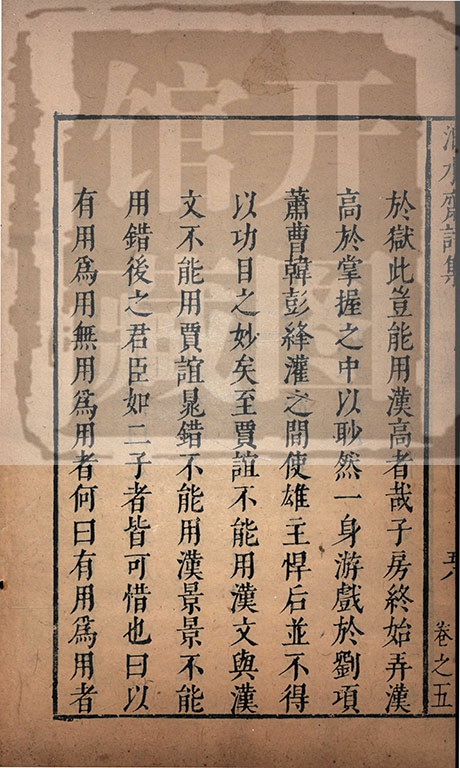 於獄此豈能用漢高者哉子房終始弄漢
高於掌握之中以眇然一身游戲於劉項
蕭曹韓彭絳灌之間使雄主悍后並不得
以功目之妙矣至賈誼不能用漢文與漢
文不能用賈誼晁錯不能用漢景景不能
用錯後之君臣如二子者皆可惜也曰以
有用爲用無用爲用者何曰有用爲用者
卷之五
开图
馆藏